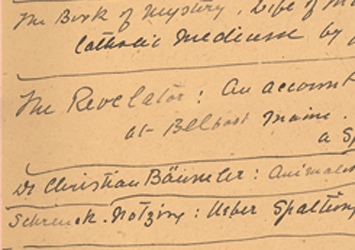 The Book of Mystery. Life of
Catholic Mediums by
The Revelator: An account
at Belfast Maine.
a
Dr Christian Bäumler: Animal
Schrenck-Notzing: Ueber Spaltung